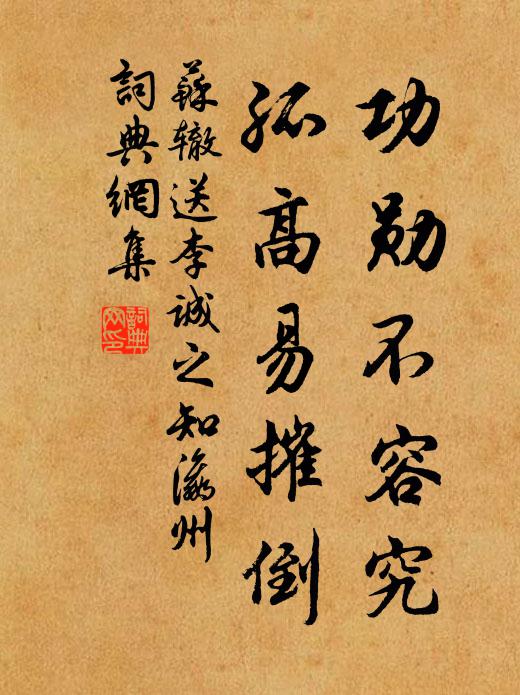 功勋不容究
孤高易摧倒
蘇辙送李诚之知瀛州
詞典網集
詞典網印